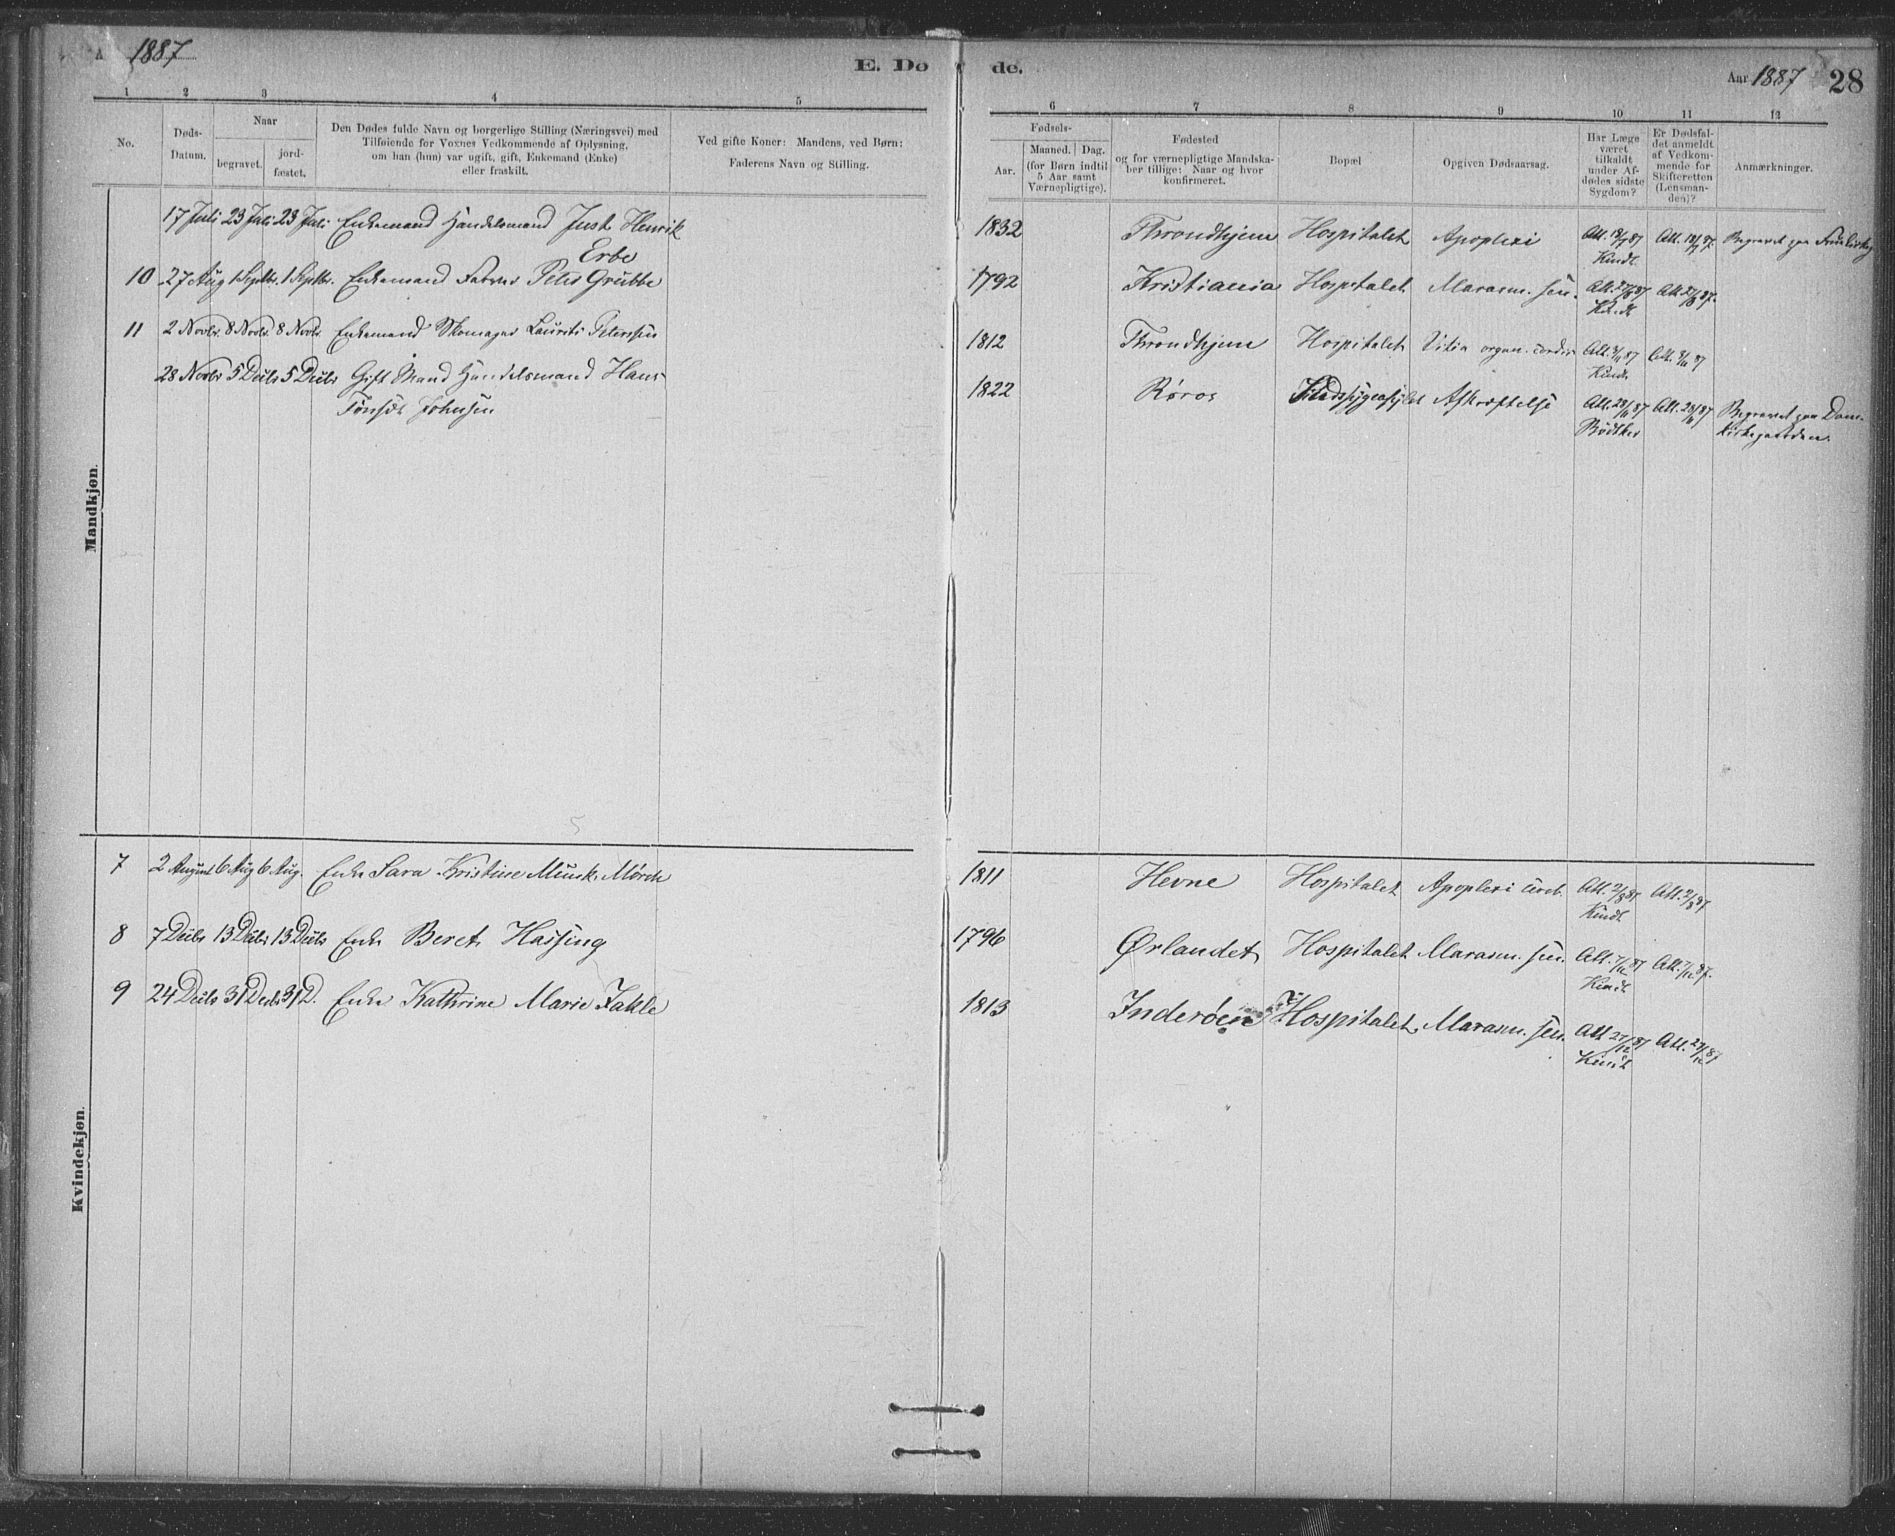 A 1887
E. Dø de.
Aar 1887 28
1 2 3 4 5 6 7 8 9 10 11 12
No.
Døds-
Datum.
Naar
begravet.
jord-
fæstet.
Den Dødes fulde Navn og borgerlige Stilling (Næringsvei) med
Tilføiende for Voxnes Vedkommende af Oplysning,
om han (hun) var ugift, gift, Enkemand (Enke)
eller fraskilt.
Ved gifte Koner: Mandens, ved Børn:
Faderens Navn og Stilling.
Fødsels-
Aar.
Maaned. Dag.
(for Børn indtil
5 Aar samt
Værnepligtige).
Fødested
og for værnepligtige Mandska-
ber tillige: Naar og hvor
konfirmeret.
Bopæl
Opgiven Dødsaarsag.
Har Læge
været
tilkaldt
under Af-
dødes sidste
Sygdom?
Er Dødsfal-
det anmeldt
af Vedkom-
mende for
Skifteretten
(Lensman-
den)?
Anmærkninger.
Mandkjøn.
17 Juli 23 Juli 23 Juli Enkemand Handelsmand Just Henrik
Erbe
1832 Throndhjem Hospitalet Apoplexi Att. 18/7 87 Att. 18/7 87. Begravet paa
Kindt.
10 27 Aug 1 Septbr. 1 Septbr. Enkemand Farver Peter Grubbe
1792 Kristiania Hospitalet Marasm. sen. Att. 27/8 87 Att. 27/8 87.
Kindt
11 2 Novbr 8 Novbr 8 Novbr. Enkemand Skomager Laurits Petersen
1812 Throndhjem Hospitalet Vitia organ. cordis Att. 3/11 87 Att. 3/11 87
Kindt.
28 Novbr 5 Decbr 5 Decbr Gift Mand Handelsmand Hans
Tønset Johnsen
1822 Røros Sindssygeasylet Afkræftelse Att. 28/11 87 Att. 28/11 87 Begravet paa Dom-
Bødtker kirkegaarden.
Kvindekjøn.
7 2 August 6 Aug 6 Aug. Enke Sara Kristine Munk Mørch
1811 Hevne Hospitalet Apoplexi cereb. Att. 2/8 87. Att. 2/8 87.
Kindt.
8 7 Decbr 13 Decbr 13 Decbr Enke Beret Hassing
1796 Ørlandet Hospitalet Marasm. sen. Att. 7/12 87 Att. 7/12 87.
Kindt
9 24 Decbr 31 Decbr 31 D. Enke Kathrine Marie Jakle
1813 Inderøen Hospitalet Marasm. sen. Att 27/12 87 Att. 27/12 87
Kindt